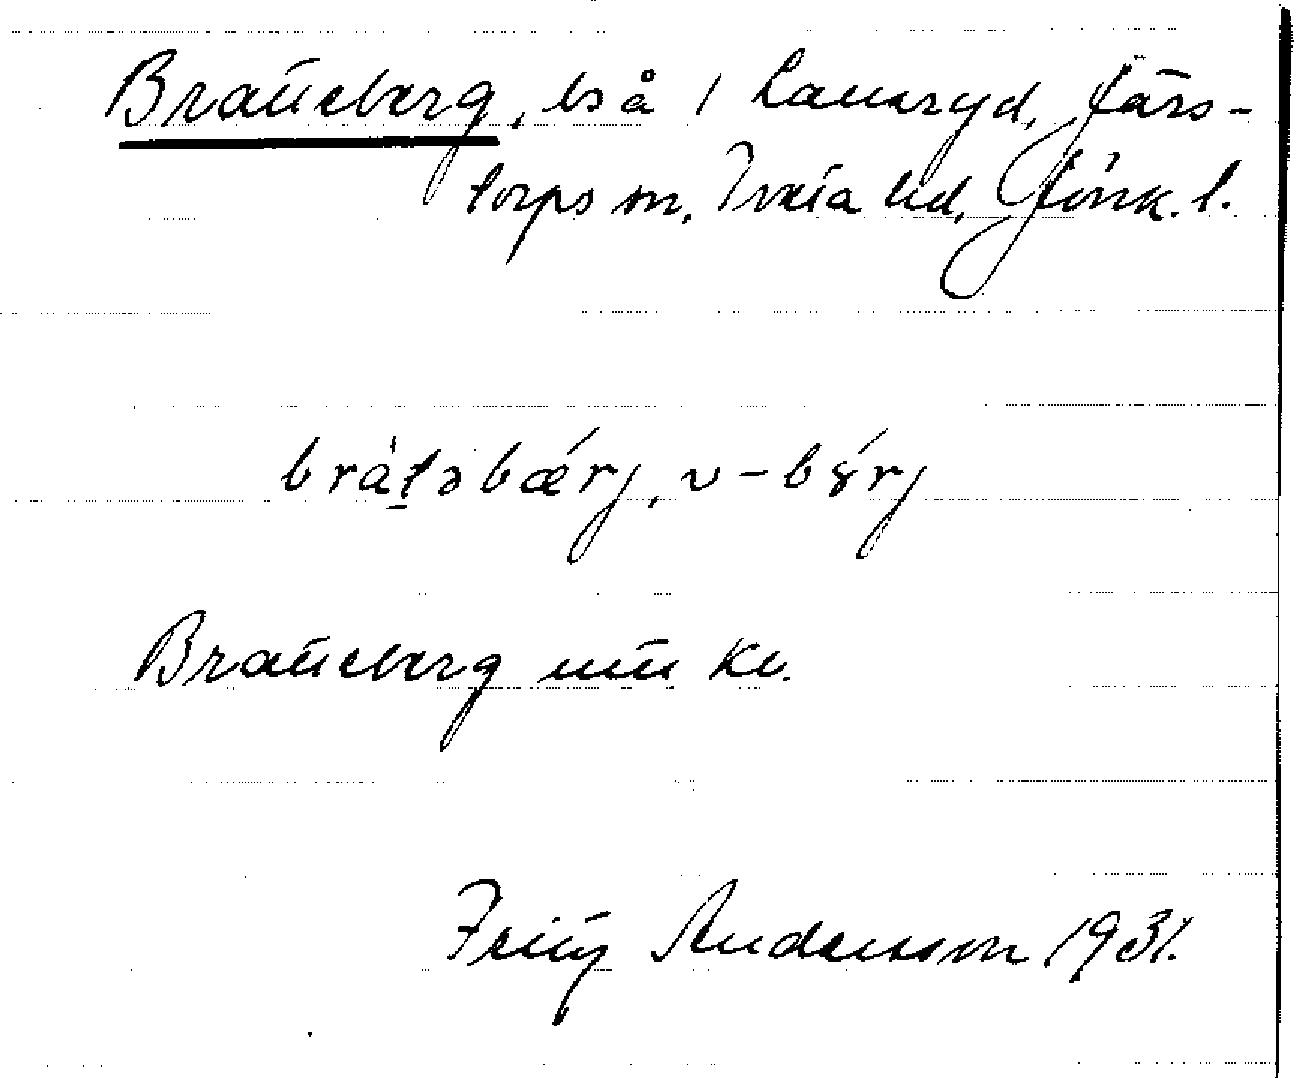 Bratteberg, bs å 1 Lannryd, Järs-
torps sn, Tveta hd, Jönk. l.
bràtəbǽrj, v -bɣ́rj
Bratteberg utm kv.
Andersson 1931.